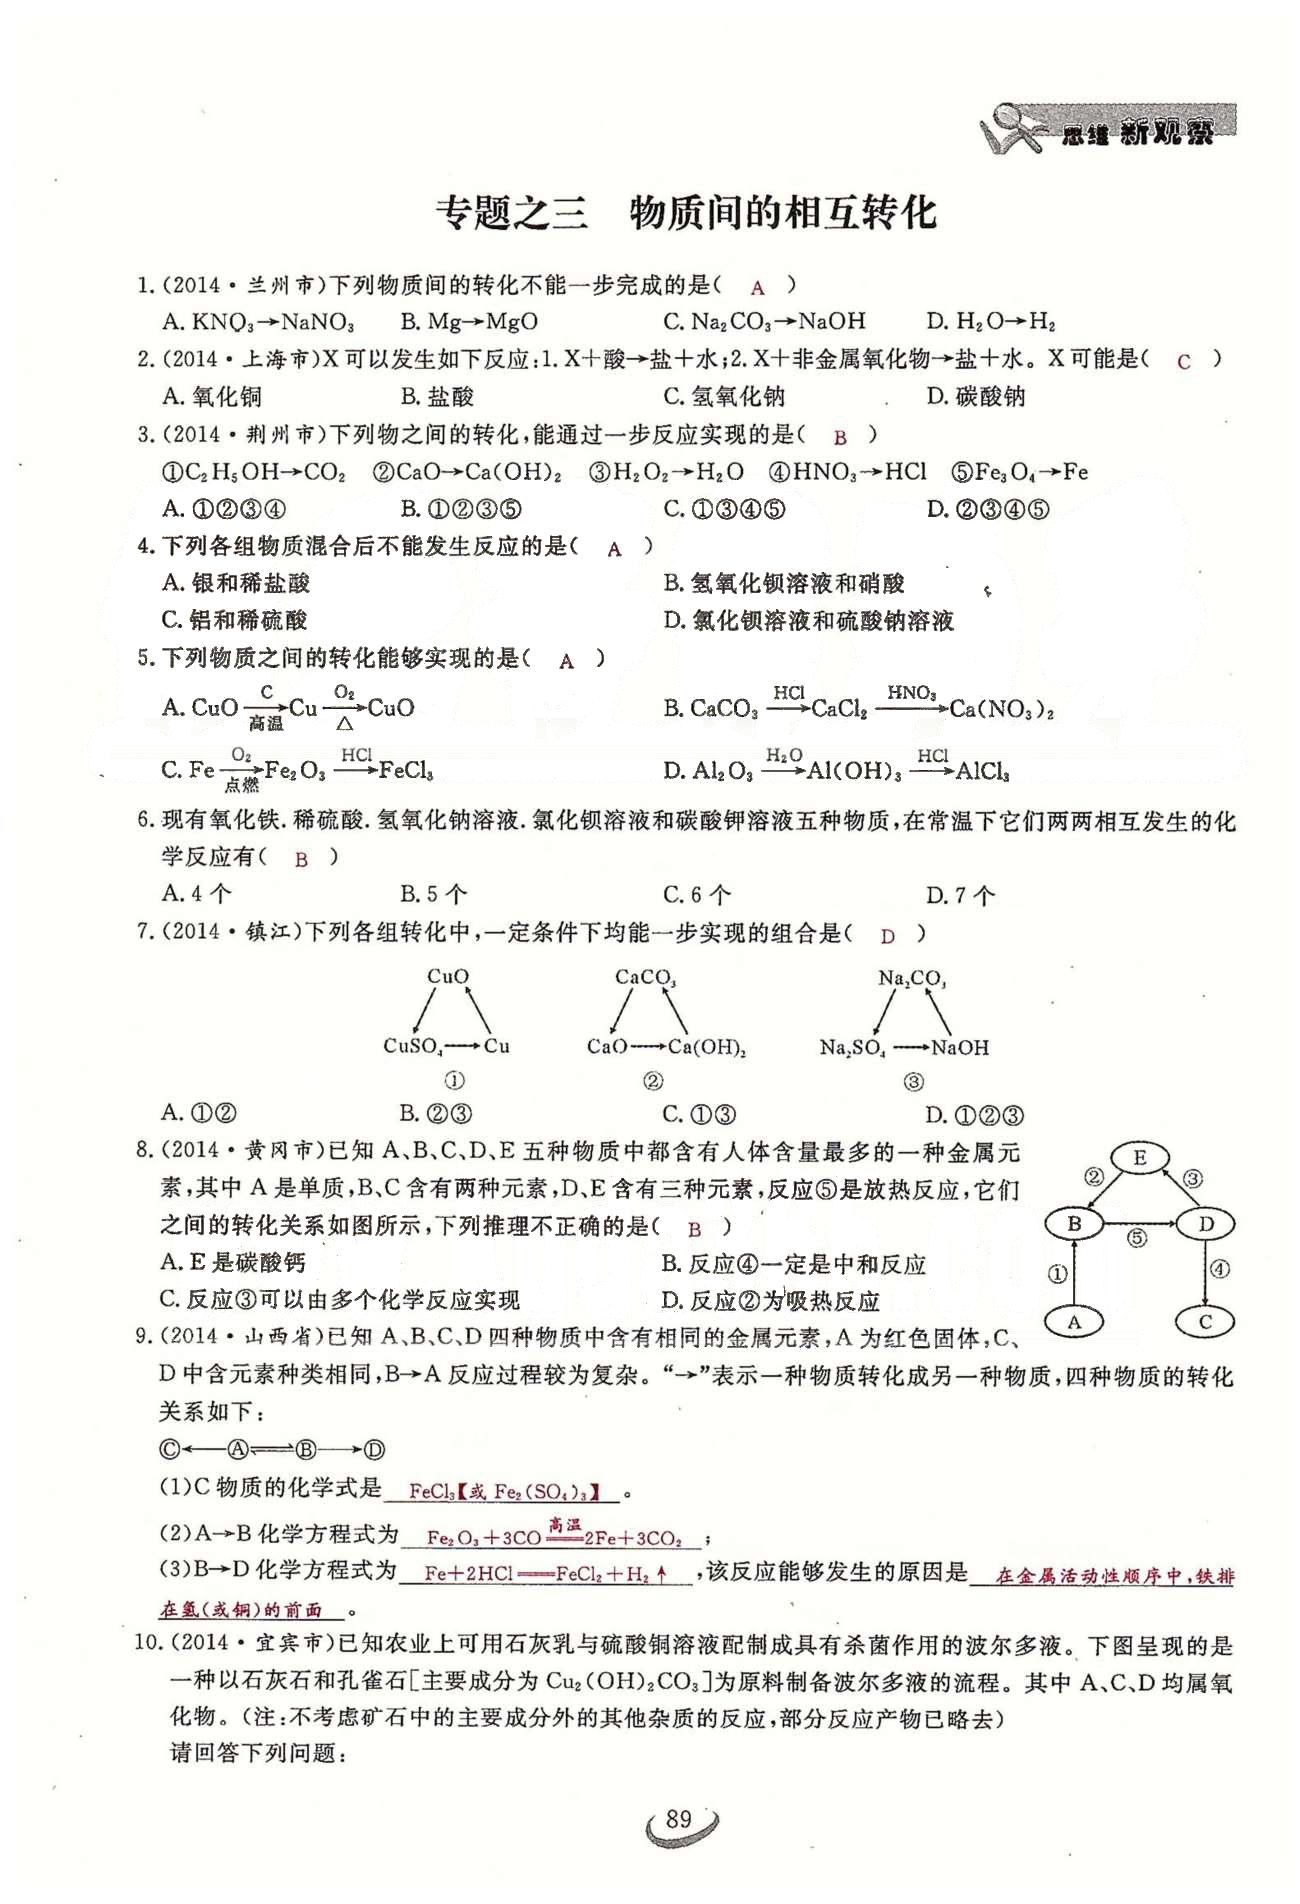 思维新观察
专题之三 物质间的相互转化
1.(2014·兰州市)下列物质间的转化不能一步完成的是( A )
A. KNO₃→NaNO₃ B. Mg→MgO C. Na₂CO₃→NaOH D. H₂O→H₂
2.(2014·上海市)X可以发生如下反应:1. X+酸→盐+水;2. X+非金属氧化物→盐+水。X可能是( C )
A. 氧化铜 B. 盐酸 C. 氢氧化钠 D. 碳酸钠
3.(2014·荆州市)下列物之间的转化,能通过一步反应实现的是( B )
①C₂H₅OH→CO₂ ②CaO→Ca(OH)₂ ③H₂O₂→H₂O ④HNO₃→HCl ⑤Fe₃O₄→Fe
A. ①②③④ B. ①②③⑤ C. ①③④⑤ D. ②③④⑤
4. 下列各组物质混合后不能发生反应的是( A )
A. 银和稀盐酸 B. 氢氧化钡溶液和硝酸
C. 铝和稀硫酸 D. 氯化钡溶液和硫酸钠溶液
5. 下列物质之间的转化能够实现的是( A )
A. CuO —C/高温→ Cu —O₂/△→ CuO B. CaCO₃ —HCl→ CaCl₂ —HNO₃→ Ca(NO₃)₂
C. Fe —O₂/点燃→ Fe₂O₃ —HCl→ FeCl₃ D. Al₂O₃ —H₂O→ Al(OH)₃ —HCl→ AlCl₃
6. 现有氧化铁. 稀硫酸. 氢氧化钠溶液. 氯化钡溶液和碳酸钾溶液五种物质,在常温下它们两两相互发生的化
学反应有( B )
A. 4个 B. 5个 C. 6个 D. 7个
7.(2014·镇江)下列各组转化中,一定条件下均能一步实现的组合是( D )
CuO CaCO₃ Na₂CO₃
CuSO₄→Cu CaO→Ca(OH)₂ Na₂SO₄→NaOH
① ② ③
A. ①② B. ②③ C. ①③ D. ①②③
8.(2014·黄冈市)已知A、B、C、D、E五种物质中都含有人体含量最多的一种金属元
素,其中A是单质,B、C含有两种元素,D、E含有三种元素,反应⑤是放热反应,它们
之间的转化关系如图所示,下列推理不正确的是( B )
A. E是碳酸钙 B. 反应④一定是中和反应
C. 反应③可以由多个化学反应实现 D. 反应②为吸热反应
E
② ③
B D
⑤
① ④
A C
9.(2014·山西省)已知A、B、C、D四种物质中含有相同的金属元素,A为红色固体,C、
D中含元素种类相同,B→A反应过程较为复杂。“→”表示一种物质转化成另一种物质,四种物质的转化
关系如下:
Ⓒ←Ⓐ⇌Ⓑ→Ⓓ
(1)C物质的化学式是 FeCl₃【或 Fe₂(SO₄)₃】 。
(2)A→B化学方程式为 Fe₂O₃+3CO 高温══ 2Fe+3CO₂ ;
(3)B→D化学方程式为 Fe+2HCl══FeCl₂+H₂↑ ,该反应能够发生的原因是 在金属活动性顺序中,铁排
在氢(或铜)的前面 。
10.(2014·宜宾市)已知农业上可用石灰乳与硫酸铜溶液配制成具有杀菌作用的波尔多液。下图呈现的是
一种以石灰石和孔雀石[主要成分为Cu₂(OH)₂CO₃]为原料制备波尔多液的流程。其中A、C、D均属氧
化物。(注:不考虑矿石中的主要成分外的其他杂质的反应,部分反应产物已略去)
请回答下列问题:
89